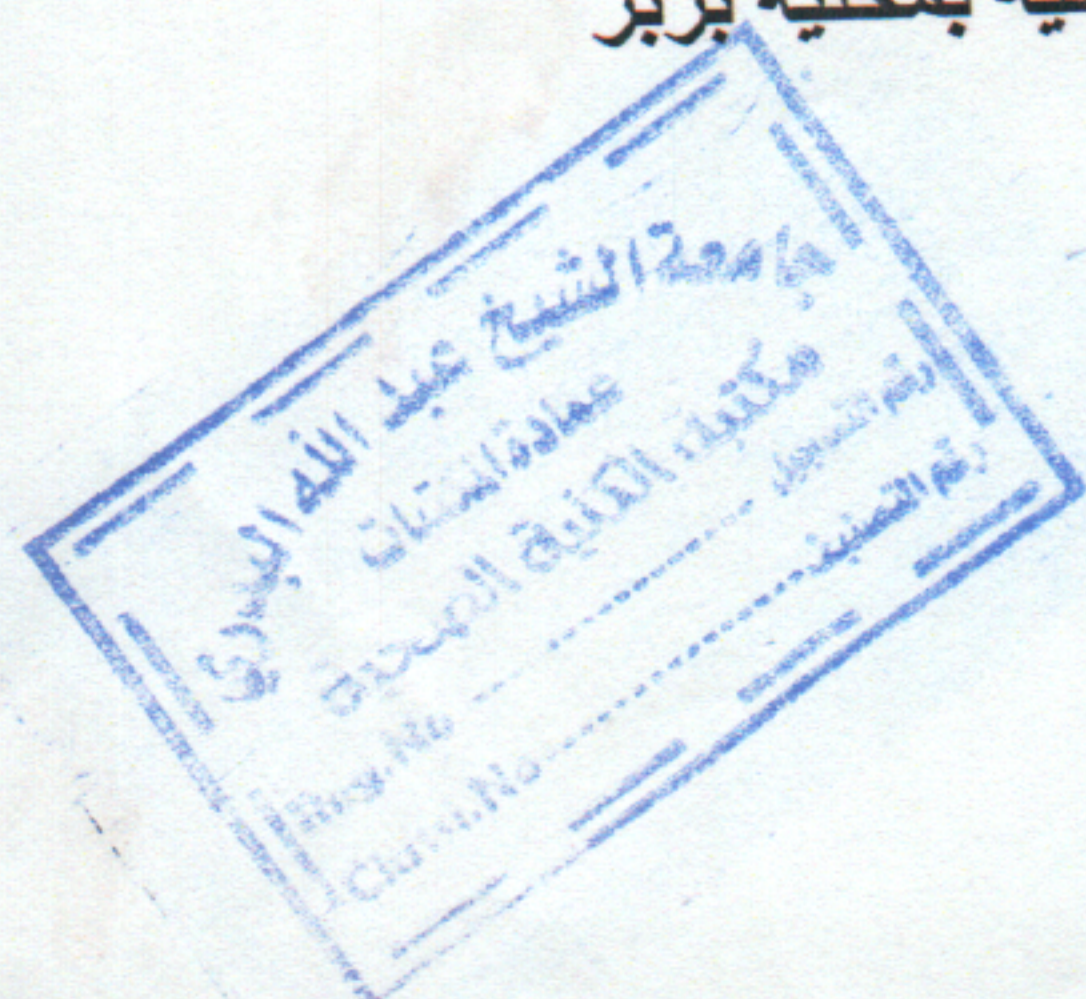 بمحلية بربر
جامعة الشيخ عبد الله البدري
عمادة المكتبات
مكتبة الكلية
رقم التسجيل
رقم التصنيف
Reg.No
Class.No